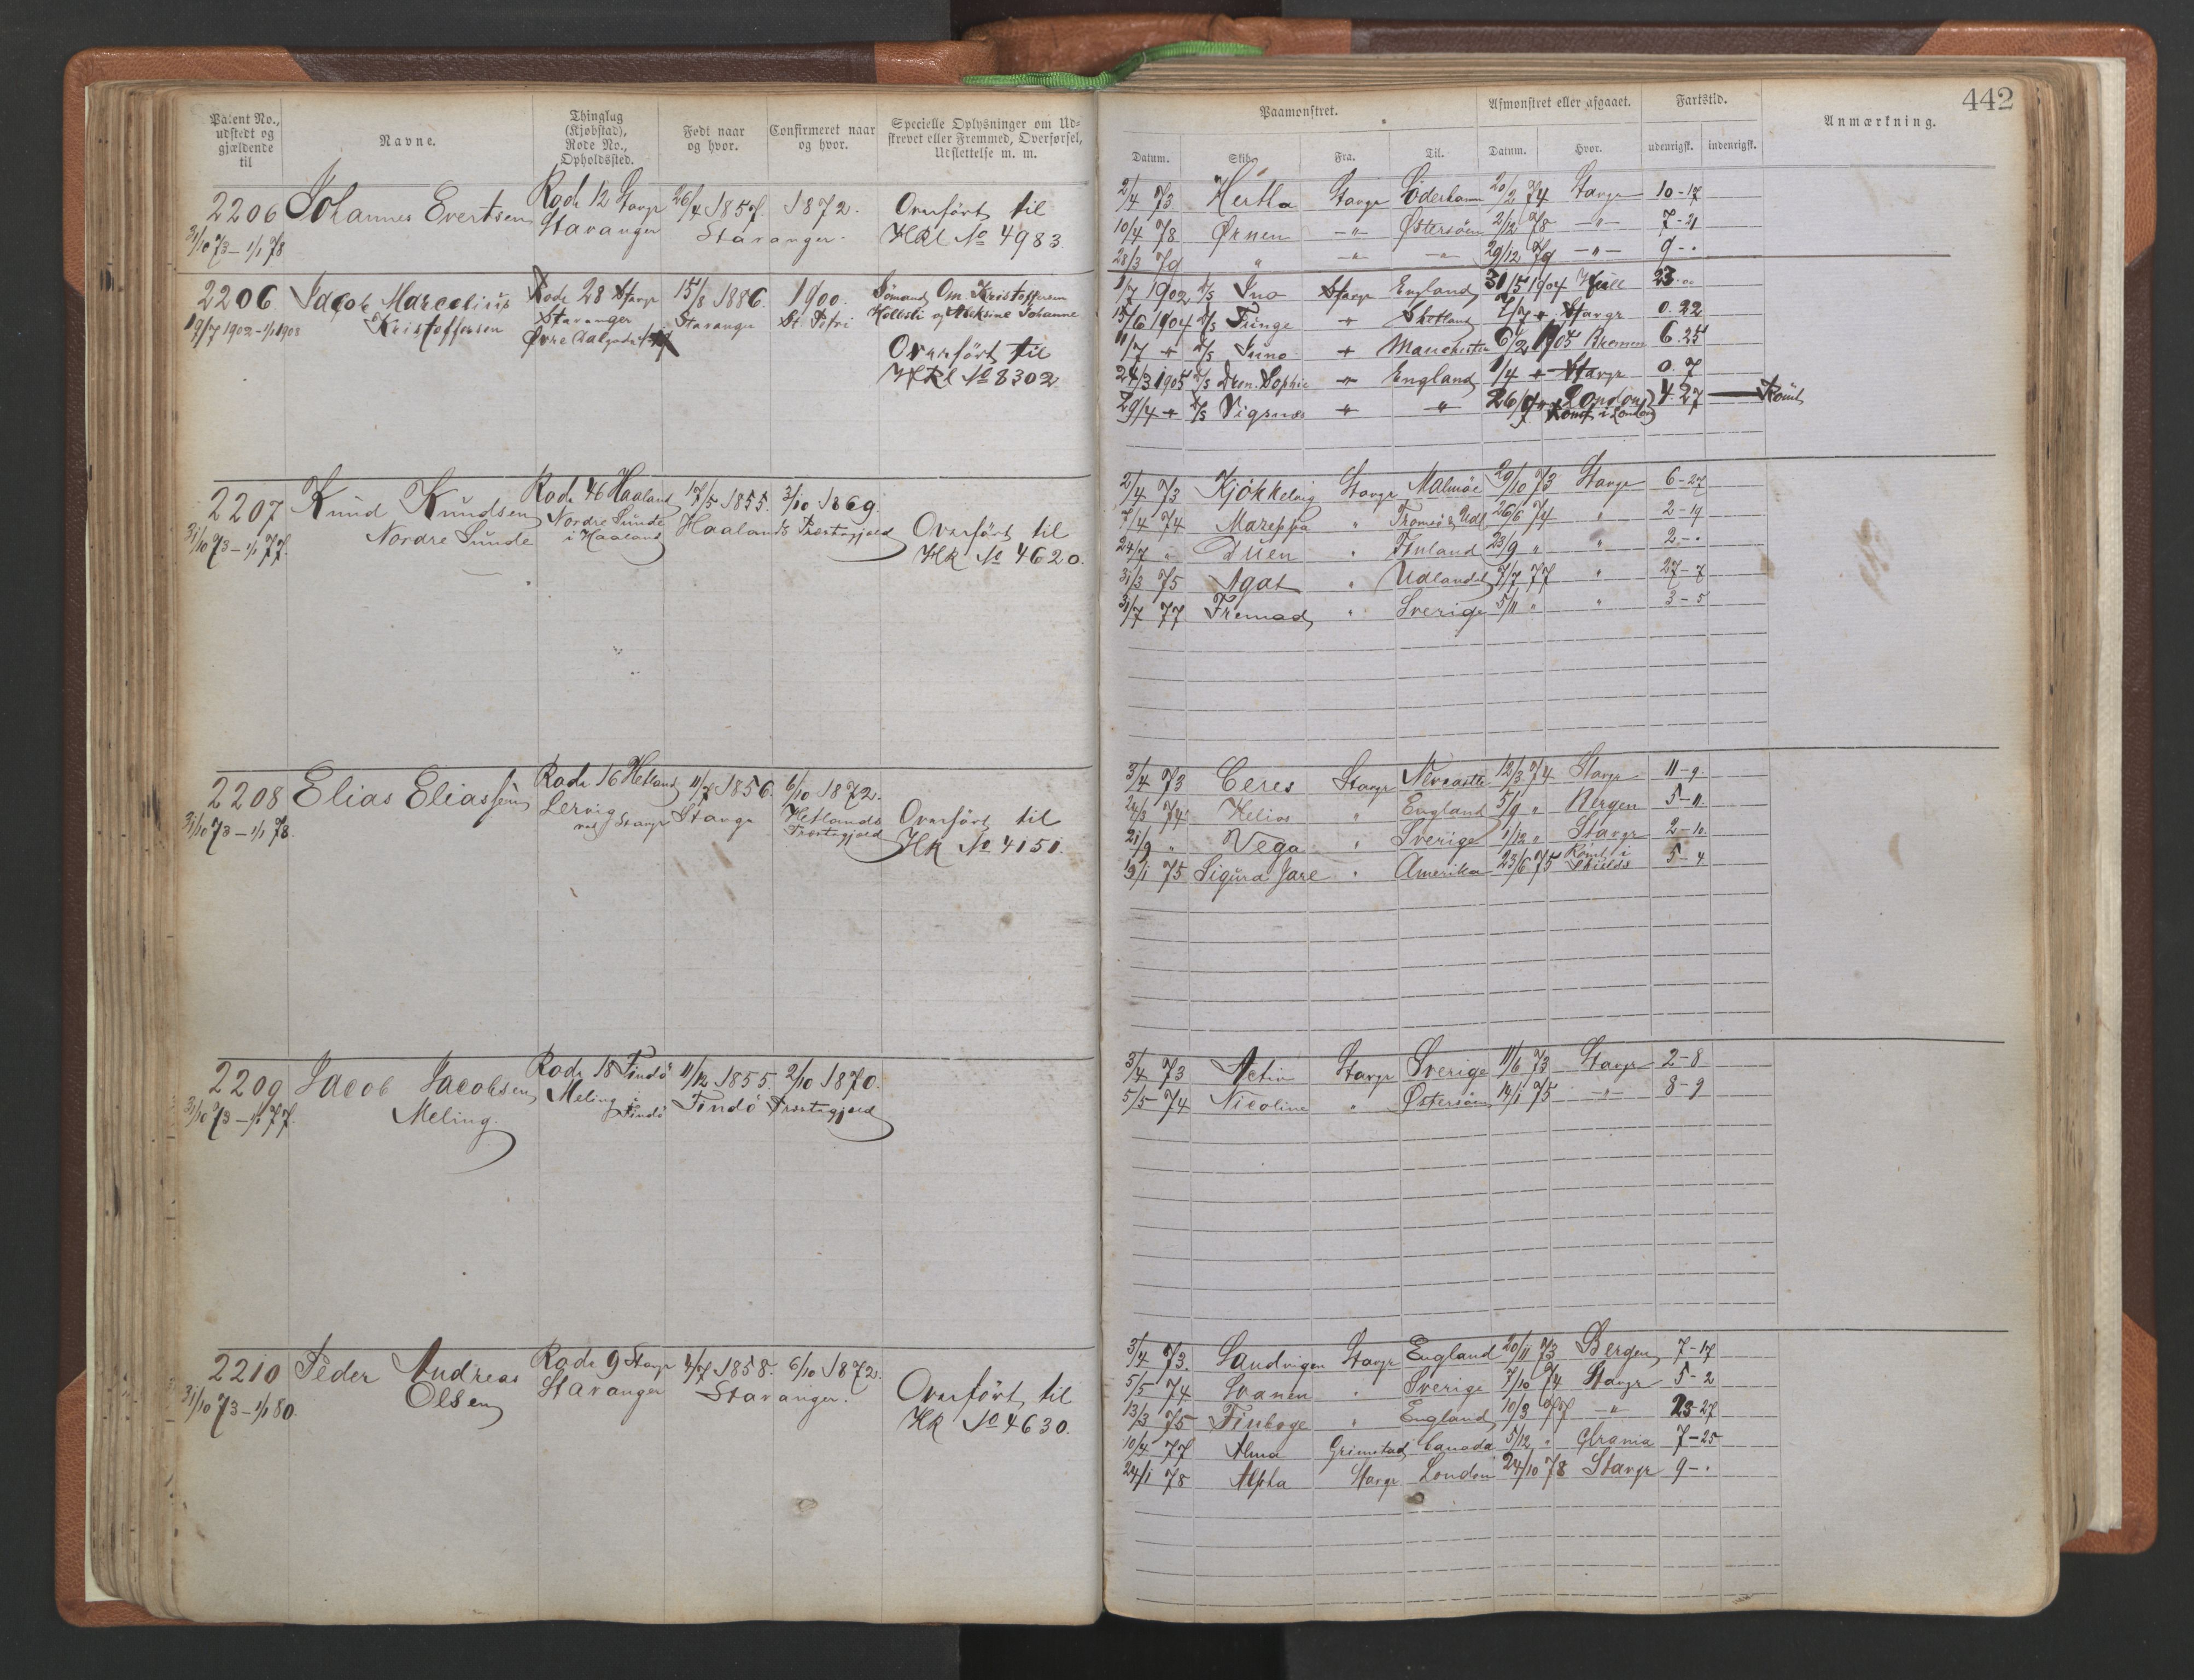 442
Patent No., udstedt og gjældende til
Navne.
Thinglag (Kjøbstad), Rode No., Opholdssted.
Født naar og hvor.
Confirmeret naar og hvor.
Specielle Oplysninger om Udskrevet eller Fremmed, Overførsel, Udslettelse m. m.
Paamønstret.
Afmønstret eller afgaaet.
Fartstid.
Anmærkning.
Datum. Skib. Fra. Til. Datum. Hvor. udenrigsk. indenrigsk.
2206 Johannes Evertsen Rode 12 Stavgr 26/4 1857. 1872. Overført til
31/10 73 – 1/1 78 Stavanger Stavanger. Hkl No 4983.
2/4 73 Hertha Stavgr Söderhamn 20/2 74 Stavgr 10-17
10/4 78 Ørnen –"– Østersöen 2/12 78 –"– 7-21
28/3 79 " –"– –"– 29/12 79 –"– 9-.
2206 Jacob Marcelius Rode 28 Stavgr 15/8 1886. 1900. Sömand Om. Kristoffersen
19/7 1902 – 1/1 1908 Kristoffersen Stavanger Stavanger St Petri Johanne
Overført til
Hkl No 8302
1/7 1902 Stavgr England 31/5 1904 Hull 23...
15/6 1904 Tunge + Shetland 7/7 + Stavgr 0.22
11/7 + Juno + Manchester 6/2 1905 Bremen 6.25
24/3 1905 Dron. Sophie + England 1/4 + Stavgr 0.7
29/4 + Vigsnes + " London 4 27 Römt
Römt i London
2207 Knud Knudsen Rode 46 Haaland 17/5 1855. 3/10 1869.
31/10 73 – 1/1 77. Nordre Sunde Nordre Sunde i Haaland Haalands Præstegjæld Overført til
Hk No 4620.
2/4 73 Kjökkelvig Stavgr Malmöe 29/10 73 Stavgr 6-27
7/4 74 Mareppa " Tromsö & Udl 26/6 74 " 2-19
24/7 " Duen " Finland 23/9 " " 2-.
31/3 75 Agat " Udlandet 7/7 77 " 27-7
31/7 77 Fremad " Sverige 5/11 " " 3-5
2208 Elias Eliassen Rode 16 Hetland 11/7 1856. 6/10 1872.
31/10 73 – 1/1 78. Lervig ved Stavgr Stavgr Hetlands Præstegjæld Overført til
Hk No 4151.
3/4 73 Ceres Stavgr Newcastle 12/3 74 Stavgr 11-9.
24/3 74 Helios " England 5/9 " Bergen 5-11.
21/9 " Vega " Sverige 1/12 " Stavgr 2-10.
19/1 75 Sigurd Jarl " Amerika 23/6 75 Römt i Shields 5-4
2209 Jacob Jacobsen Rode 18 Findö 11/12 1855. 2/10 1870.
31/10 73 – 1/1 77. Meling. Meling i Findö Findö Præstegjæld
3/4 73 Activ Stavgr Sverige 11/6 73 Stavgr 2-8
5/5 74 Nicoline " Østersöen 14/1 75 –"– 8-9
2210 Peder Andreas Rode 9 Stavgr 4/7 1858. 6/10 1872.
31/10 73 – 1/1 80. Olsen Stavanger Stavanger. Overført til
Hk No 4630.
3/4 73. Sandvigen Stavgr England 20/11 73 Bergen 7-17
5/5 74 Svanen " Sverige 7/10 74 Stavgr 5-2
13/3 75 Finboge " England 10/3 77 –"– 23-27
10/4 77 Alma Grimstad Canada 5/12 " Chrania 7-25
24/1 78 Alpha Stavgr London 24/10 78 Stavgr 9-.